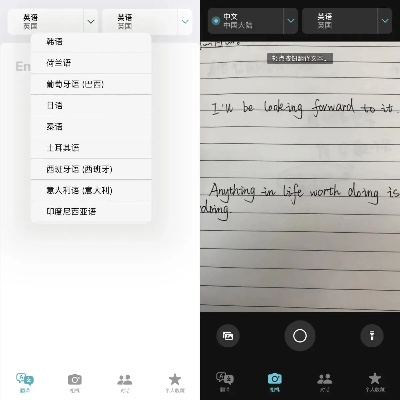 英语
英国
英语
英国
En
韩语
荷兰语
葡萄牙语 (巴西)
日语
泰语
土耳其语
西班牙语 (西班牙)
意大利语 (意大利)
印度尼西亚语
翻译
相机
对话
个人收藏
中文
中国大陆
英语
英国
轻点按钮翻译文本。
I'll be looking forward to it.
Anything in life worth doing is
doing.
翻译
相机
对话
个人收藏